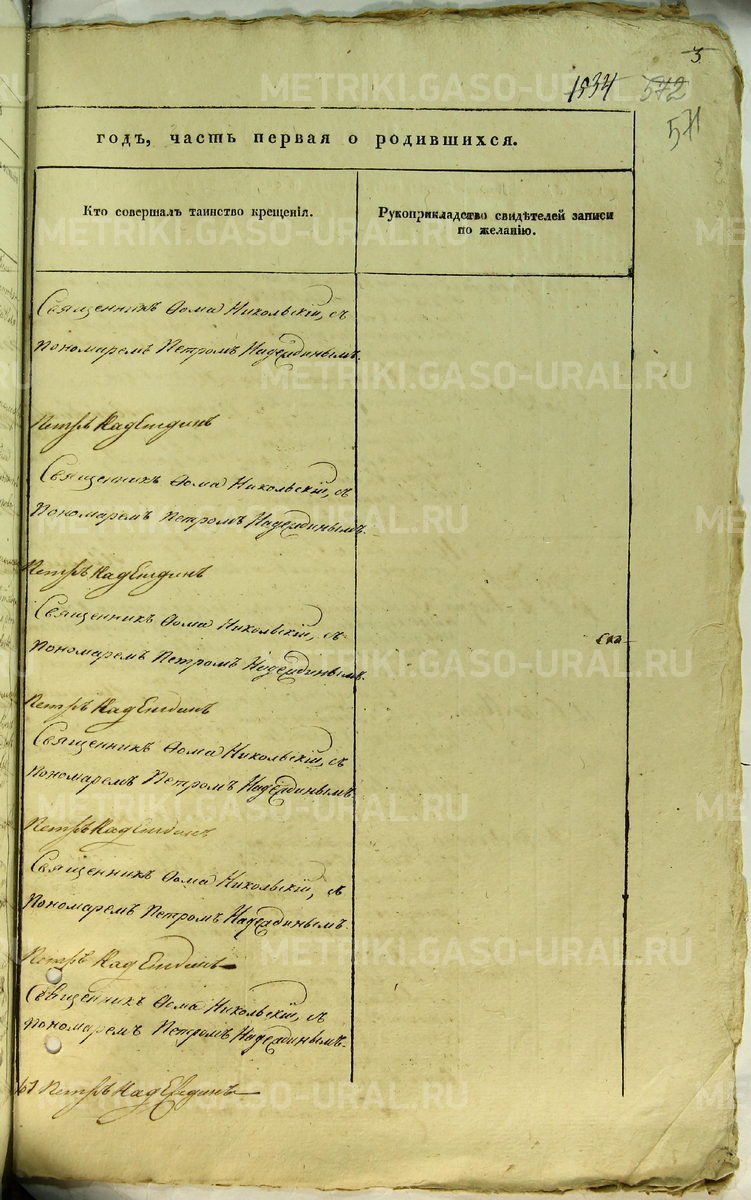 3
1834 572
571
годъ, часть первая о родившихся.
Кто совершалъ таинство крещенія.
Рукоприкладство свидѣтелей записи
по желанію.
Священникъ Ѳома Никольскій, съ
пономаремъ Петромъ Надеждинымъ.
Петръ Надеждинъ
Священникъ Ѳома Никольскій, съ
пономаремъ Петромъ Надеждинымъ.
Петръ Надеждинъ
Священникъ Ѳома Никольскій, съ
пономаремъ Петромъ Надеждинымъ.
Петръ Надеждинъ
Священникъ Ѳома Никольскій, съ
пономаремъ Петромъ Надеждинымъ.
Петръ Надеждинъ
Священникъ Ѳома Никольскій, съ
пономаремъ Петромъ Надеждинымъ.
Петръ Надеждинъ
Священникъ Ѳома Никольскій, съ
пономаремъ Петромъ Надеждинымъ.
Петръ Надеждинъ
METRIKI.GASO-URAL.RU